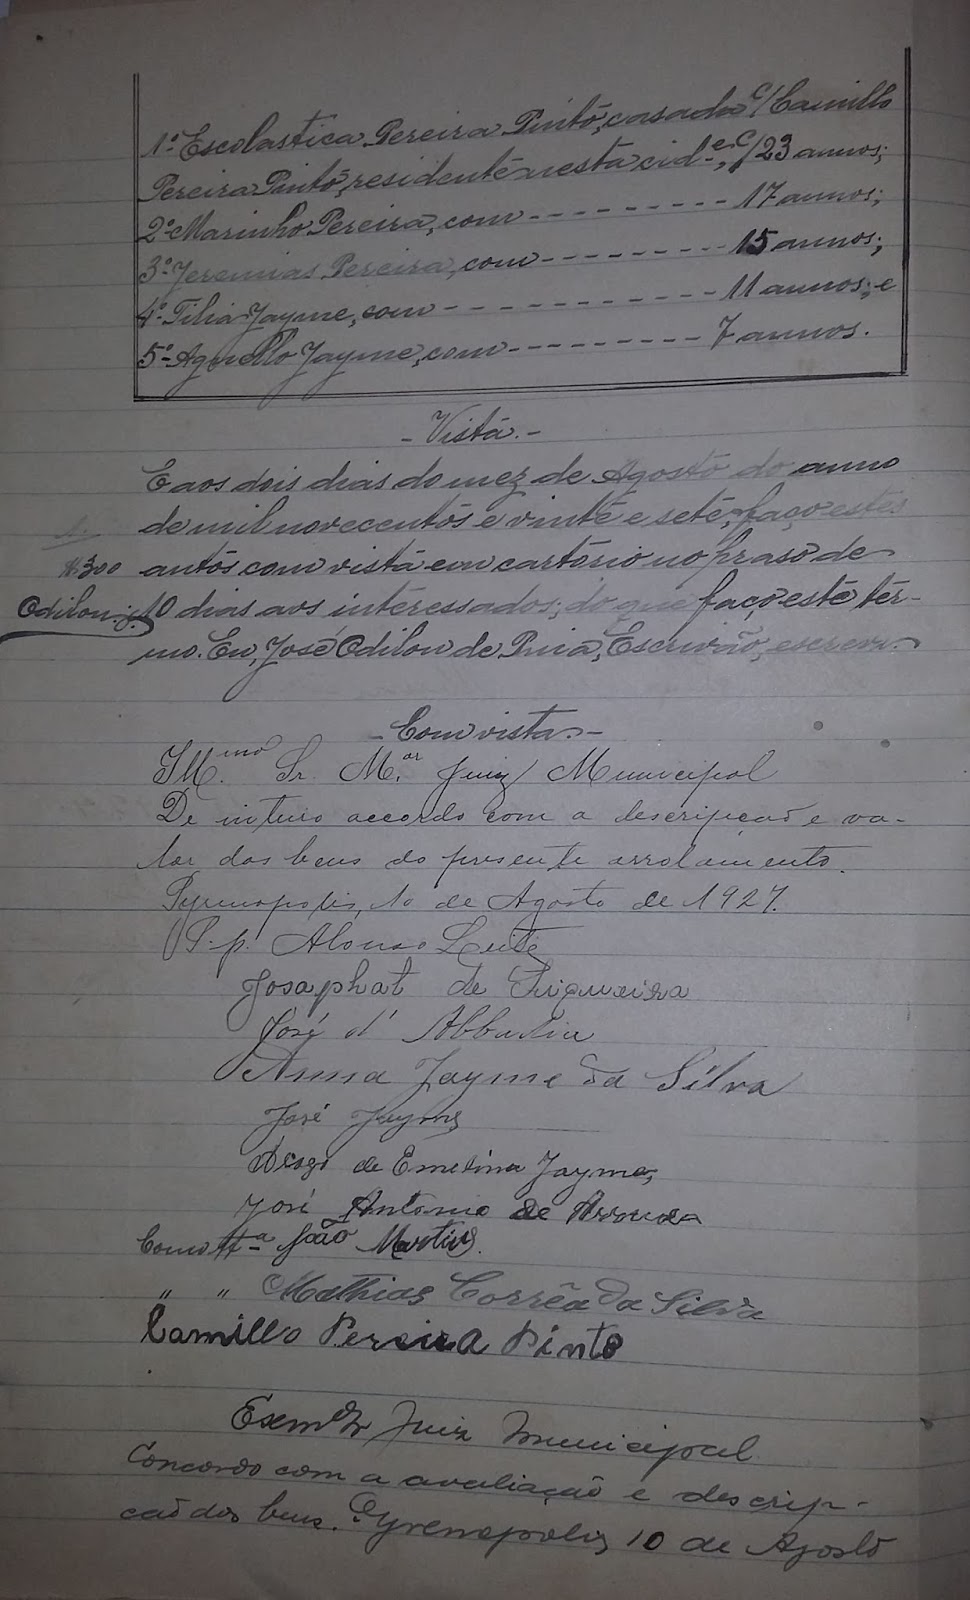 1º Escolastica Pereira Pinto, casada c/ Camillo
Pereira Pinto, residente nesta cid.e, c/ 23 annos;
2º Marinho Pereira, com - - - - - - - - - 17 annos;
3º Jeremias Pereira, com - - - - - - - - 15 annos;
4º Tilia Jayme, com - - - - - - - - - - - 11 annos; e
5º Agnello Jayme, com - - - - - - - - - 7 annos.
- Vista. -
E aos dois dias do mez de Agosto do anno
de mil novecentos e vinte e sete, faço estes
autos com vista em cartorio no praso de
$300
Odilon. 10 dias aos interessados; do que faço este ter-
mo. Eu, José Odilon de Pina, Escrivão, escrevi.
- Com vista. -
Ill.mo Sr. M.or Juiz Municipal
De inteiro accordo com a descripção e va-
lor dos bens do presente arrolamento.
Pyrenopolis, 10 de Agosto de 1927.
P.p. Alonso Leite
Josaphat de Siqueira
José d' Abbadia
Anna Jayme da Silva
José Jayme
de Emelina Jayme,
José Antonio de Arruda
Como tt.a João Martins.
" " Mathias Corrêa da Silva
Camillo Pereira Pinto
Exmo Sr Juiz Municipal
Concordo com a avaliação e descrip-
cão dos bens. Pyrenopolis, 10 de Agosto